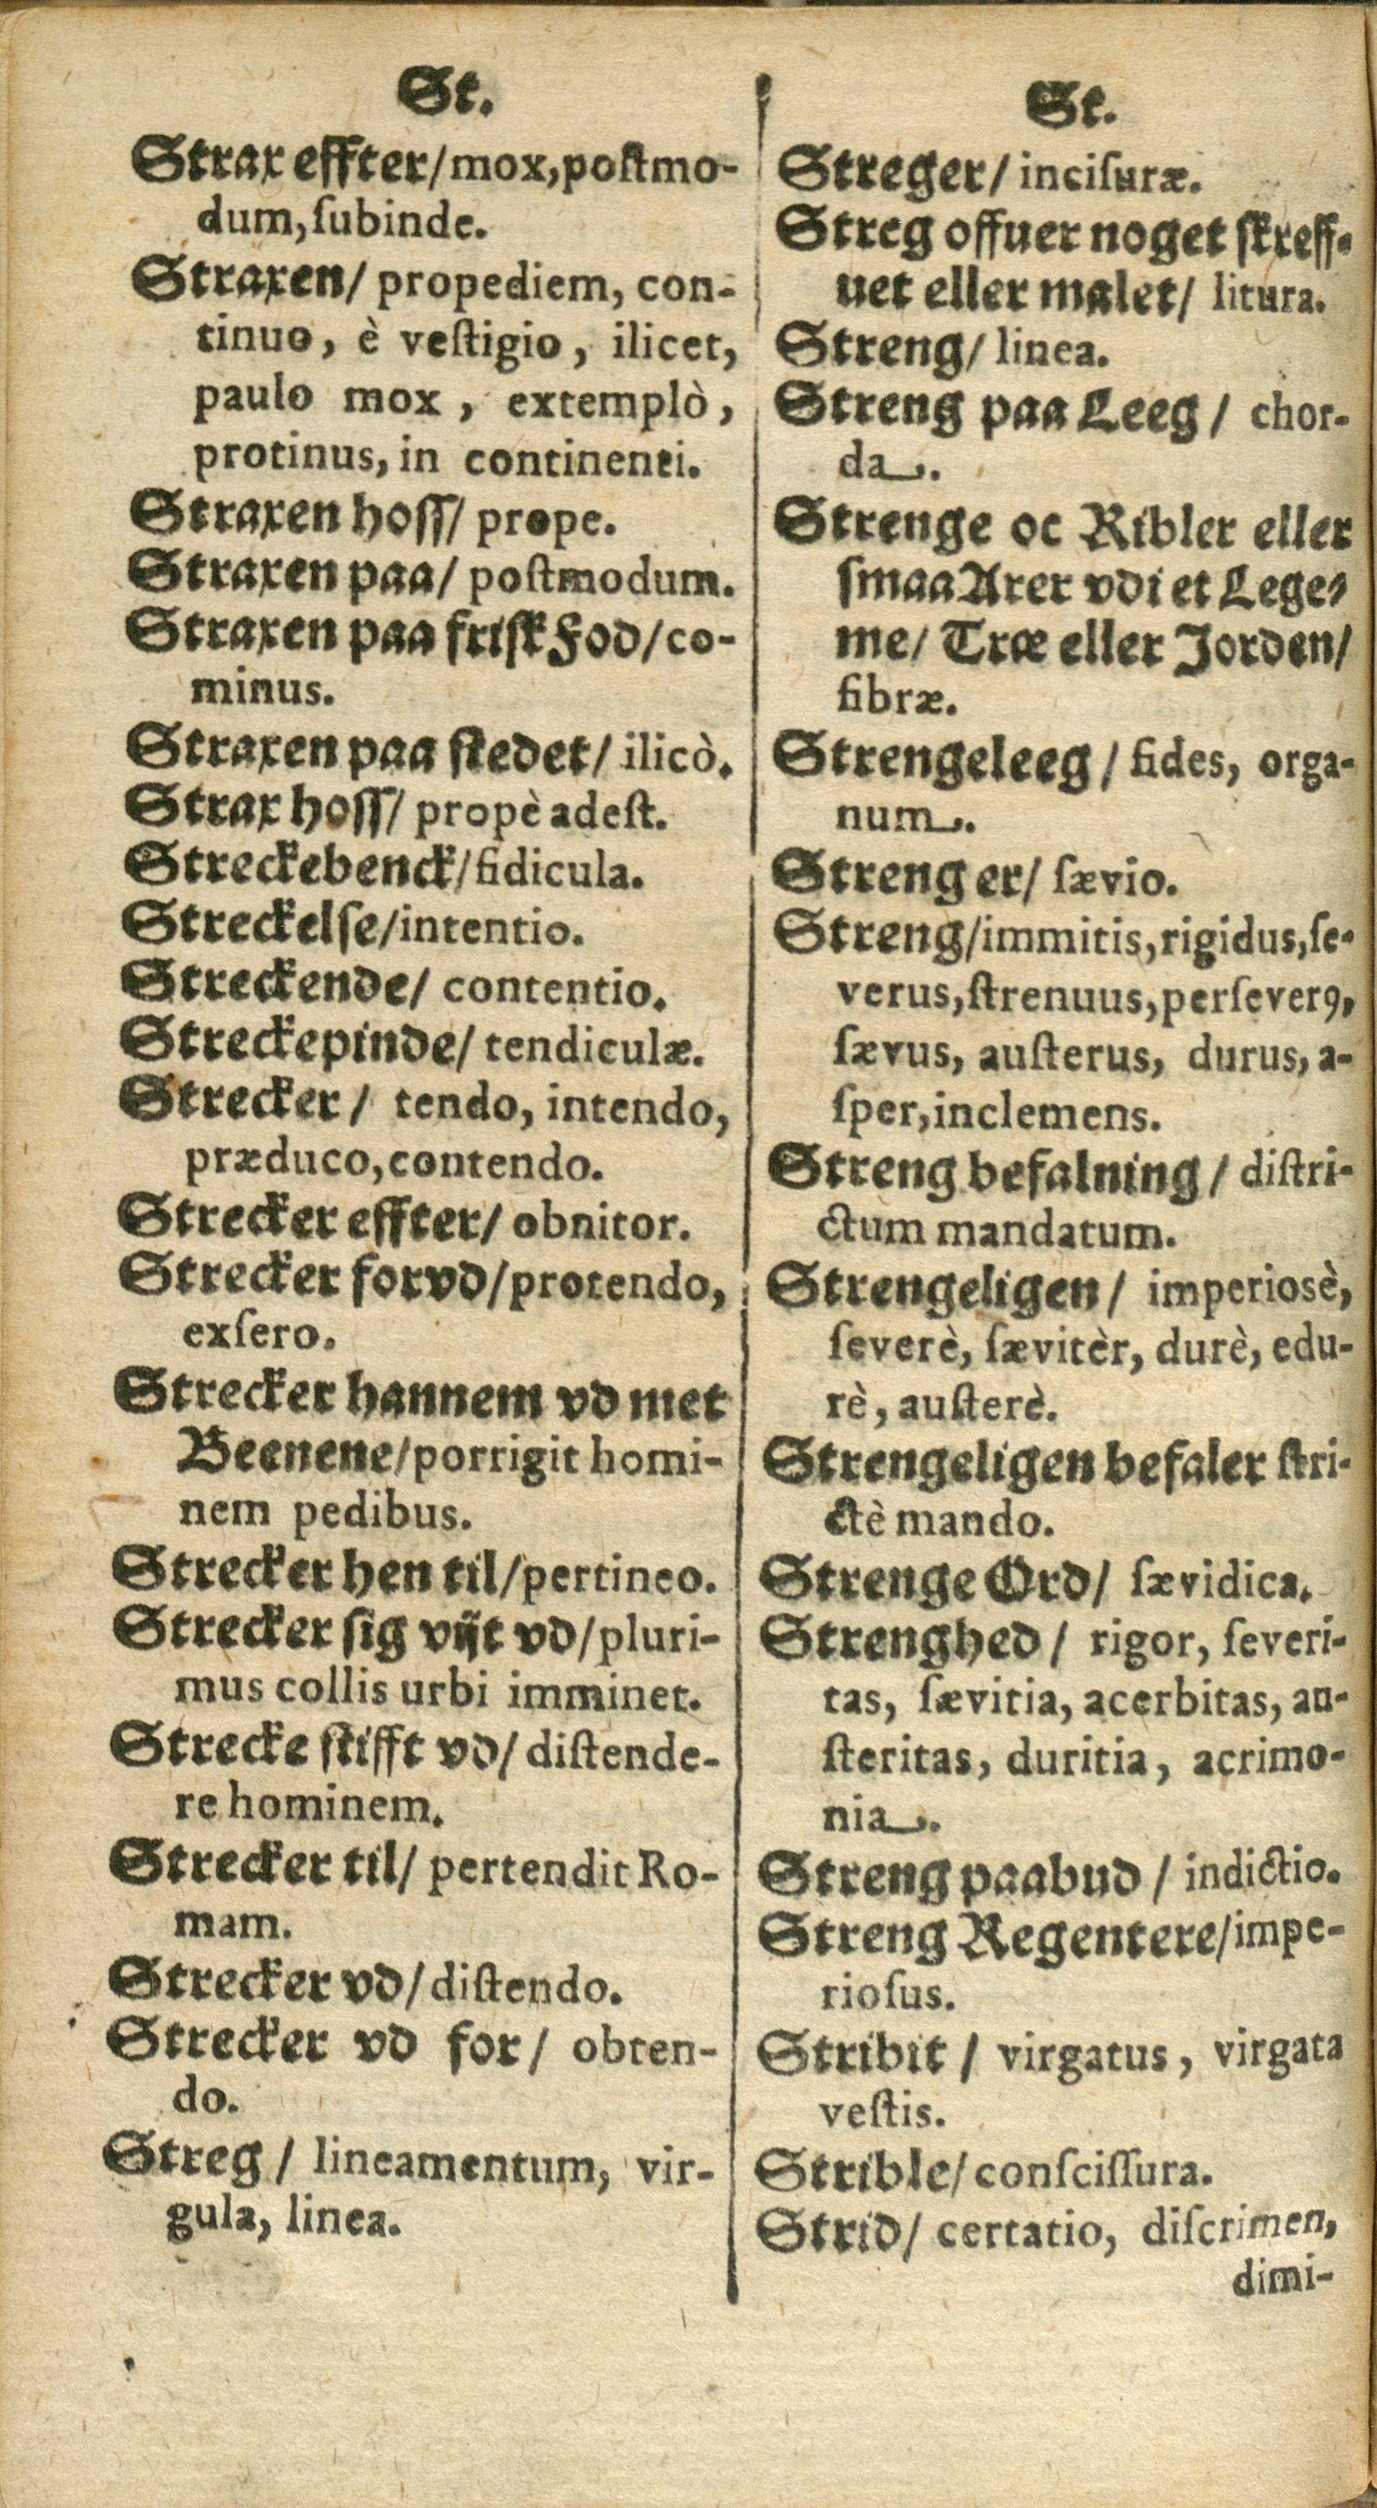 St.
Strax effter/mox,poſtmo-
dum,ſubinde.
Straxen/ propediem, con-
tinuo, è veſtigio, ilicet,
paulo mox, extemplò,
protinus, in continenti.
Straxen hoſſ/ prope.
Straxen paa/ poſtmodum.
Straxen paa friſk Fod/co-
minus.
Straxen paa ſtedet/ ilicò.
Strax hoſſ/ propè adeſt.
Streckebenck/fidicula.
Streckelſe/intentio.
Streckende/ contentio.
Streckepinde/ tendiculæ.
Strecker/ tendo, intendo,
præduco,contendo.
Strecker effter/ obnitor.
Strecker forvd/protendo,
exſero.
Strecker hannem vd met
Beenene/porrigit homi-
nem pedibus.
Strecker hen til/pertineo.
Strecker ſig vijt vd/pluri-
mus collis urbi imminet.
Strecke ſtifft vd/ diſtende-
re hominem.
Strecker til/ pertendit Ro-
mam.
Strecker vd/diſtendo.
Strecker vd for/ obten-
do.
Streg/ lineamentum, vir-
gula, linea.
St.
Streger/ inciſuræ.
Streg offuer noget ſkreff-
uet eller malet/ litura.
Streng/ linea.
Streng paa Leeg/ chor-
da.
Strenge oc Ribler eller
ſmaa Arer vdi et Lege-
me/ Træ eller Jorden/
fibræ.
Strengeleeg/ fides, orga-
num.
Streng er/ ſævio.
Streng/immitis,rigidus,ſe-
verus,ſtrenuus,perſeverꝰ,
ſævus, auſterus, durus, a-
ſper,inclemens.
Streng befalning/ diſtri-
ctum mandatum.
Strengeligen/ imperiosè,
ſeverè, ſævitèr, durè, edu-
rè, auſterè.
Strengeligen befaler ſtri-
ctè mando.
Strenge Ord/ ſævidica.
Strenghed/ rigor, ſeveri-
tas, ſævitia, acerbitas, au-
ſteritas, duritia, acrimo-
nia.
Streng paabud/ indictio.
Streng Regentere/impe-
rioſus.
Stribit/ virgatus, virgata
veſtis.
Strible/ conſciſſura.
Strid/ certatio, diſcrimen,
dimi-